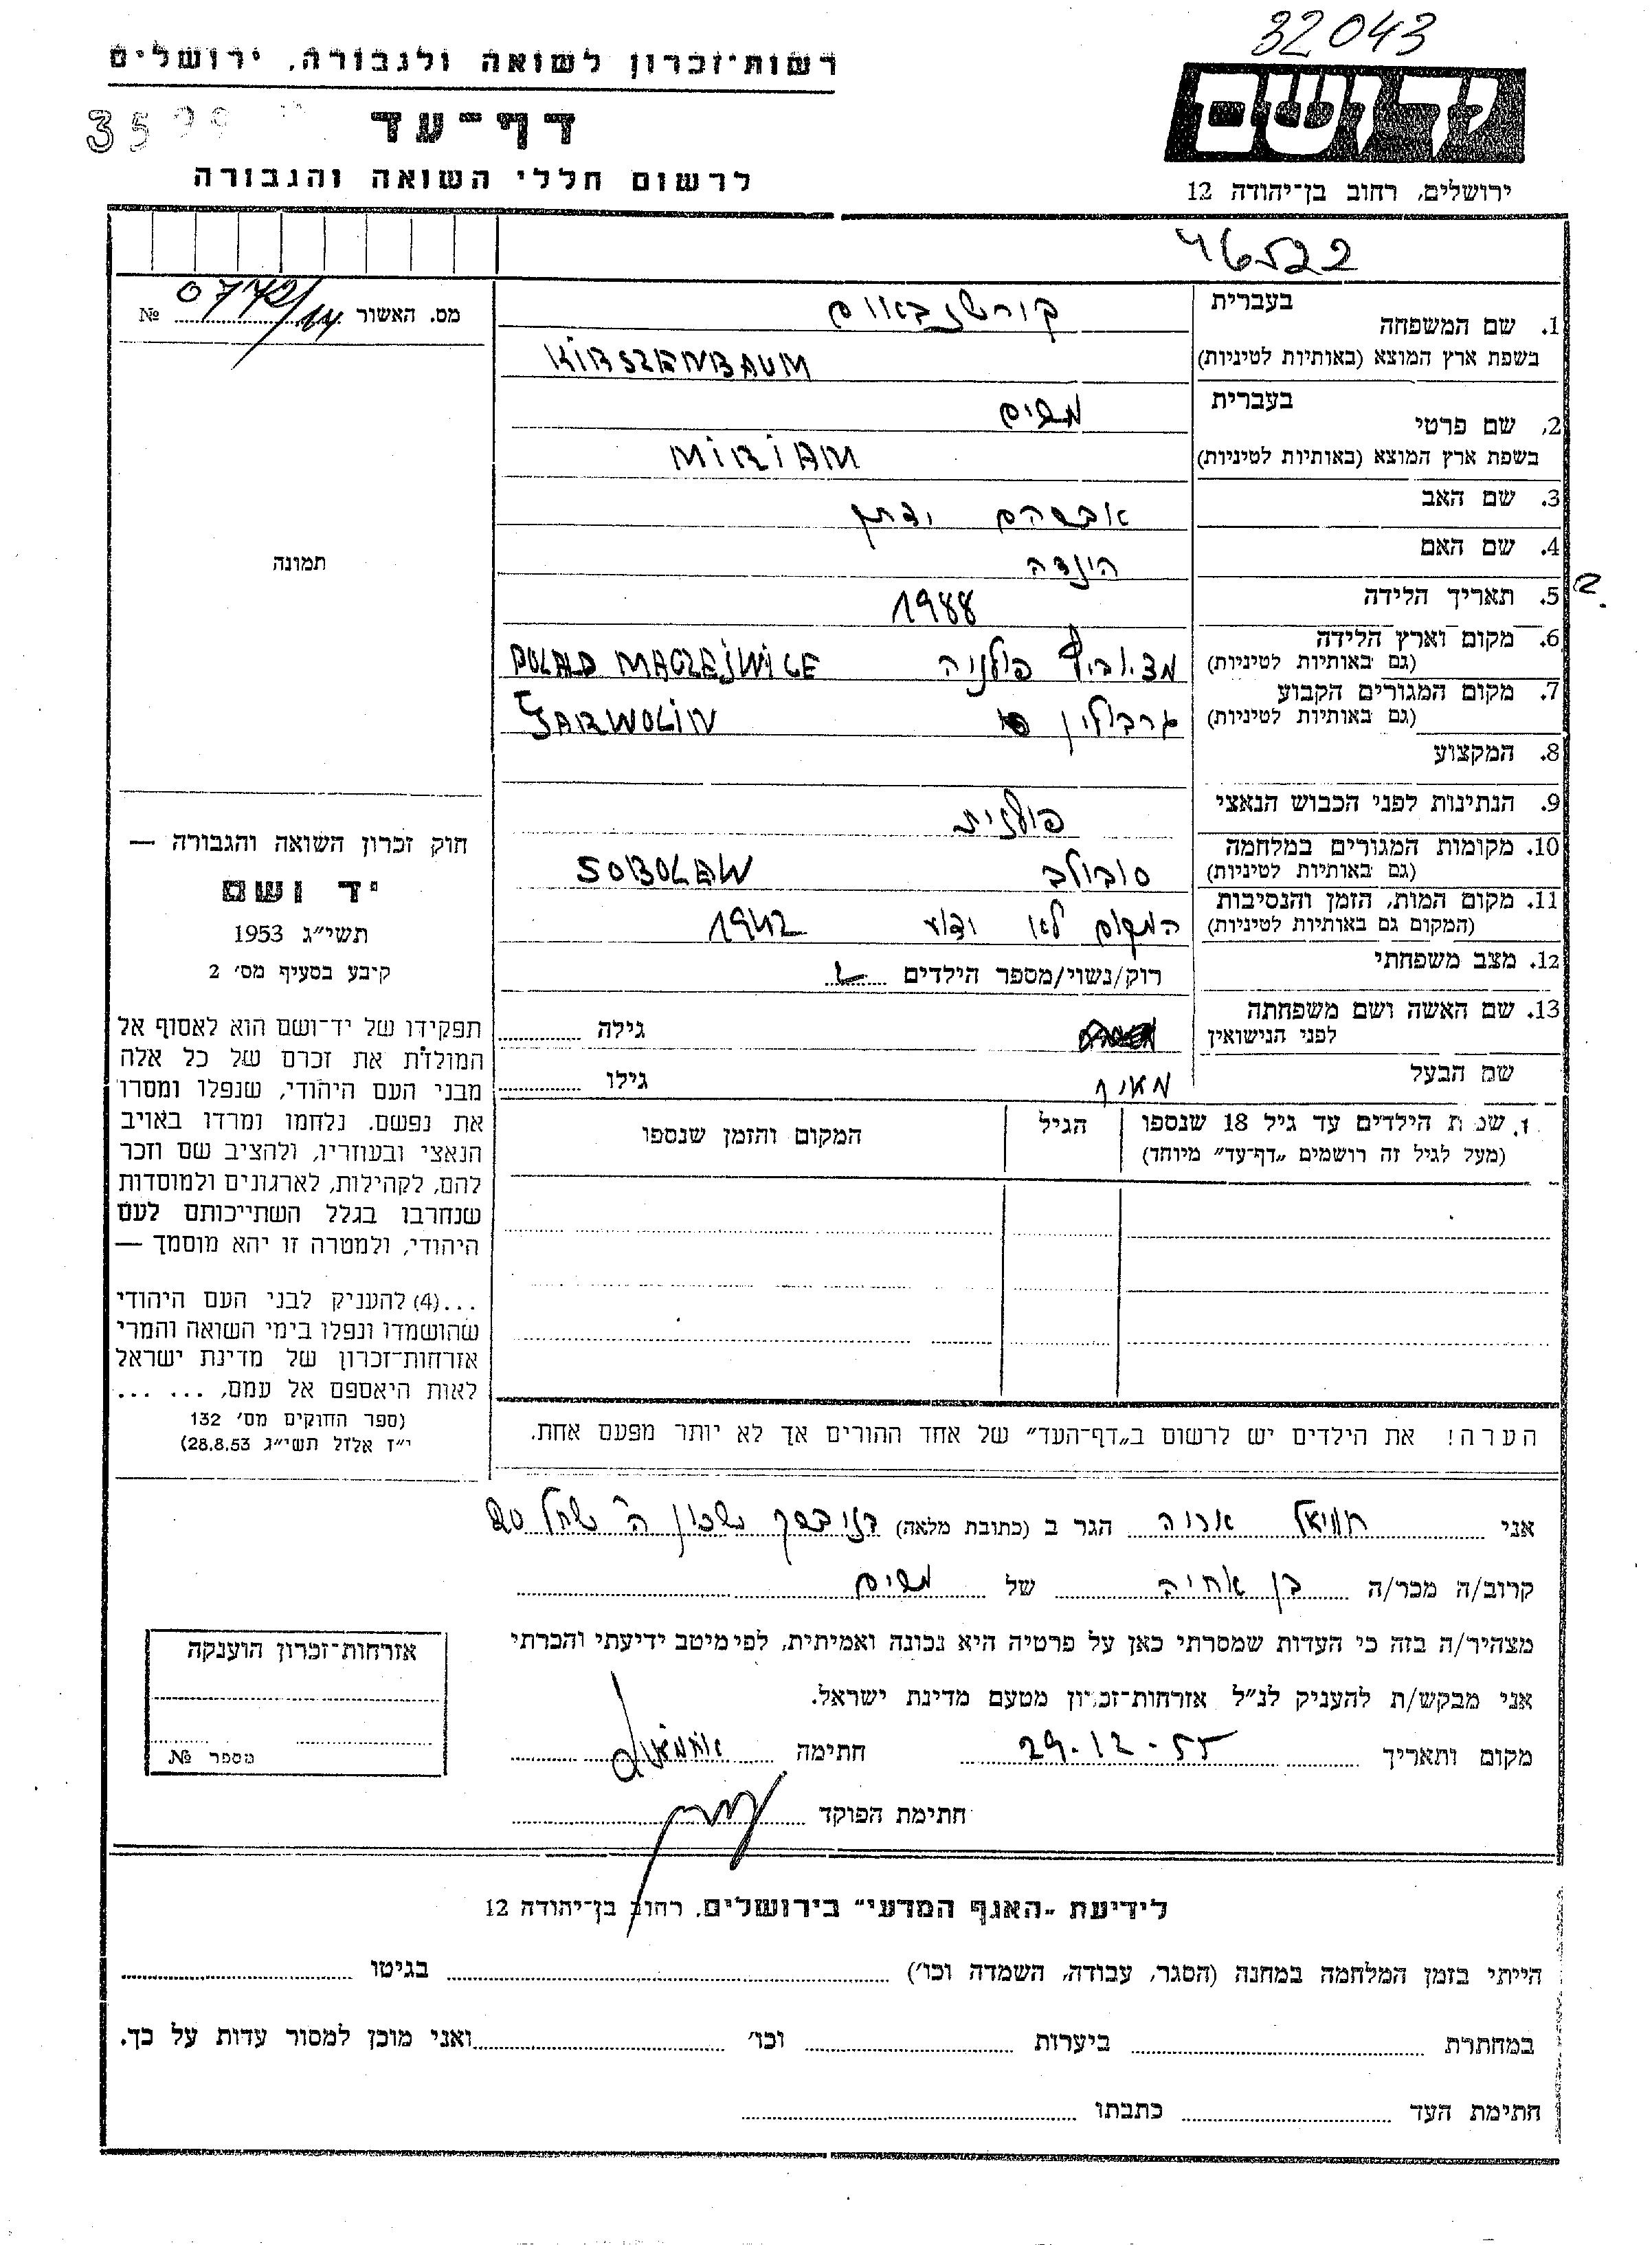 32043
רשות־זכרון לשואה ולגבורה, ירושלים
דף־עד
לרשום חללי השואה והגבורה
יד ושם
ירושלים, רחוב בן־יהודה 12
46522
מס. האשור № 0772/14
1. שם המשפחה בעברית קורשנבאום
בשפת ארץ המוצא (באותיות לטיניות) KIRSZENBAUM
2. שם פרטי בעברית מרים
בשפת ארץ המוצא (באותיות לטיניות) MIRIAM
3. שם האב אברהם
4. שם האם הינדה
5. תאריך הלידה 1988
6. מקום וארץ הלידה
(גם באותיות לטיניות) פולניה MACZEJWICE
7. מקום המגורים הקבוע
(גם באותיות לטיניות) גרבולין GARWOLIN
8. המקצוע
9. הנתינות לפני הכבוש הנאצי פולנית
10. מקומות המגורים במלחמה
(גם באותיות לטיניות) סובולב SOBOLEW
11. מקום המות, הזמן והנסיבות
(המקום גם באותיות לטיניות) המקום לא ידוע 1942
12. מצב משפחתי רוק/נשוי/מספר הילדים
13. שם האשה ושם משפחתה
לפני הנישואין גילה
שם הבעל גילו
שמות הילדים עד גיל 18 שנספו הגיל המקום והזמן שנספו
(מעל לגיל זה רושמים „דף־עד״ מיוחד)
הערה! את הילדים יש לרשום ב„דף־העד״ של אחד ההורים אך לא יותר מפעם אחת.
תמונה
חוק זכרון השואה והגבורה —
יד ושם
תשי״ג 1953
קיבע בסעיף מס׳ 2
תפקידו של יד־ושם הוא לאסוף אל
המולדת את זכרם של כל אלה
מבני העם היהודי, שנפלו ומסרו
את נפשם. נלחמו ומרדו באויב
הנאצי ובעוזריו, ולהציב שם וזכר
להם, לקהילות, לארגונים ולמוסדות
שנחרבו בגלל השתייכותם לעם
היהודי, ולמטרה זו יהא מוסמך —
...(4) להעניק לבני העם היהודי
שהושמדו ונפלו בימי השואה והמרי
אזרחות־זכרון של מדינת ישראל
לאות היאספם אל עמם, ... ...
(ספר החוקים מס׳ 132
י״ז אלול תשי״ג 28.8.53)
אני אריה הגר ב (כתובת מלאה) שכון
קרוב/ה מכר/ה בן אחיה של מרים
מצהיר/ה בזה כי העדות שמסרתי כאן על פרטיה היא נכונה ואמיתית, לפי מיטב ידיעתי והכרתי
אני מבקש/ת להעניק לנ״ל אזרחות־זכרון מטעם מדינת ישראל.
מקום ותאריך 29-12-55 חתימה
חתימת הפוקד
אזרחות־זכרון הוענקה
מספר №
לידיעת „האגף המדעי״ בירושלים, רחוב בן־יהודה 12
הייתי בזמן המלחמה במחנה (הסגר, עבודה, השמדה וכו׳) בגיטו
במחתרת ביערות וכו׳ ואני מוכן למסור עדות על כך.
חתימת העד כתבתו